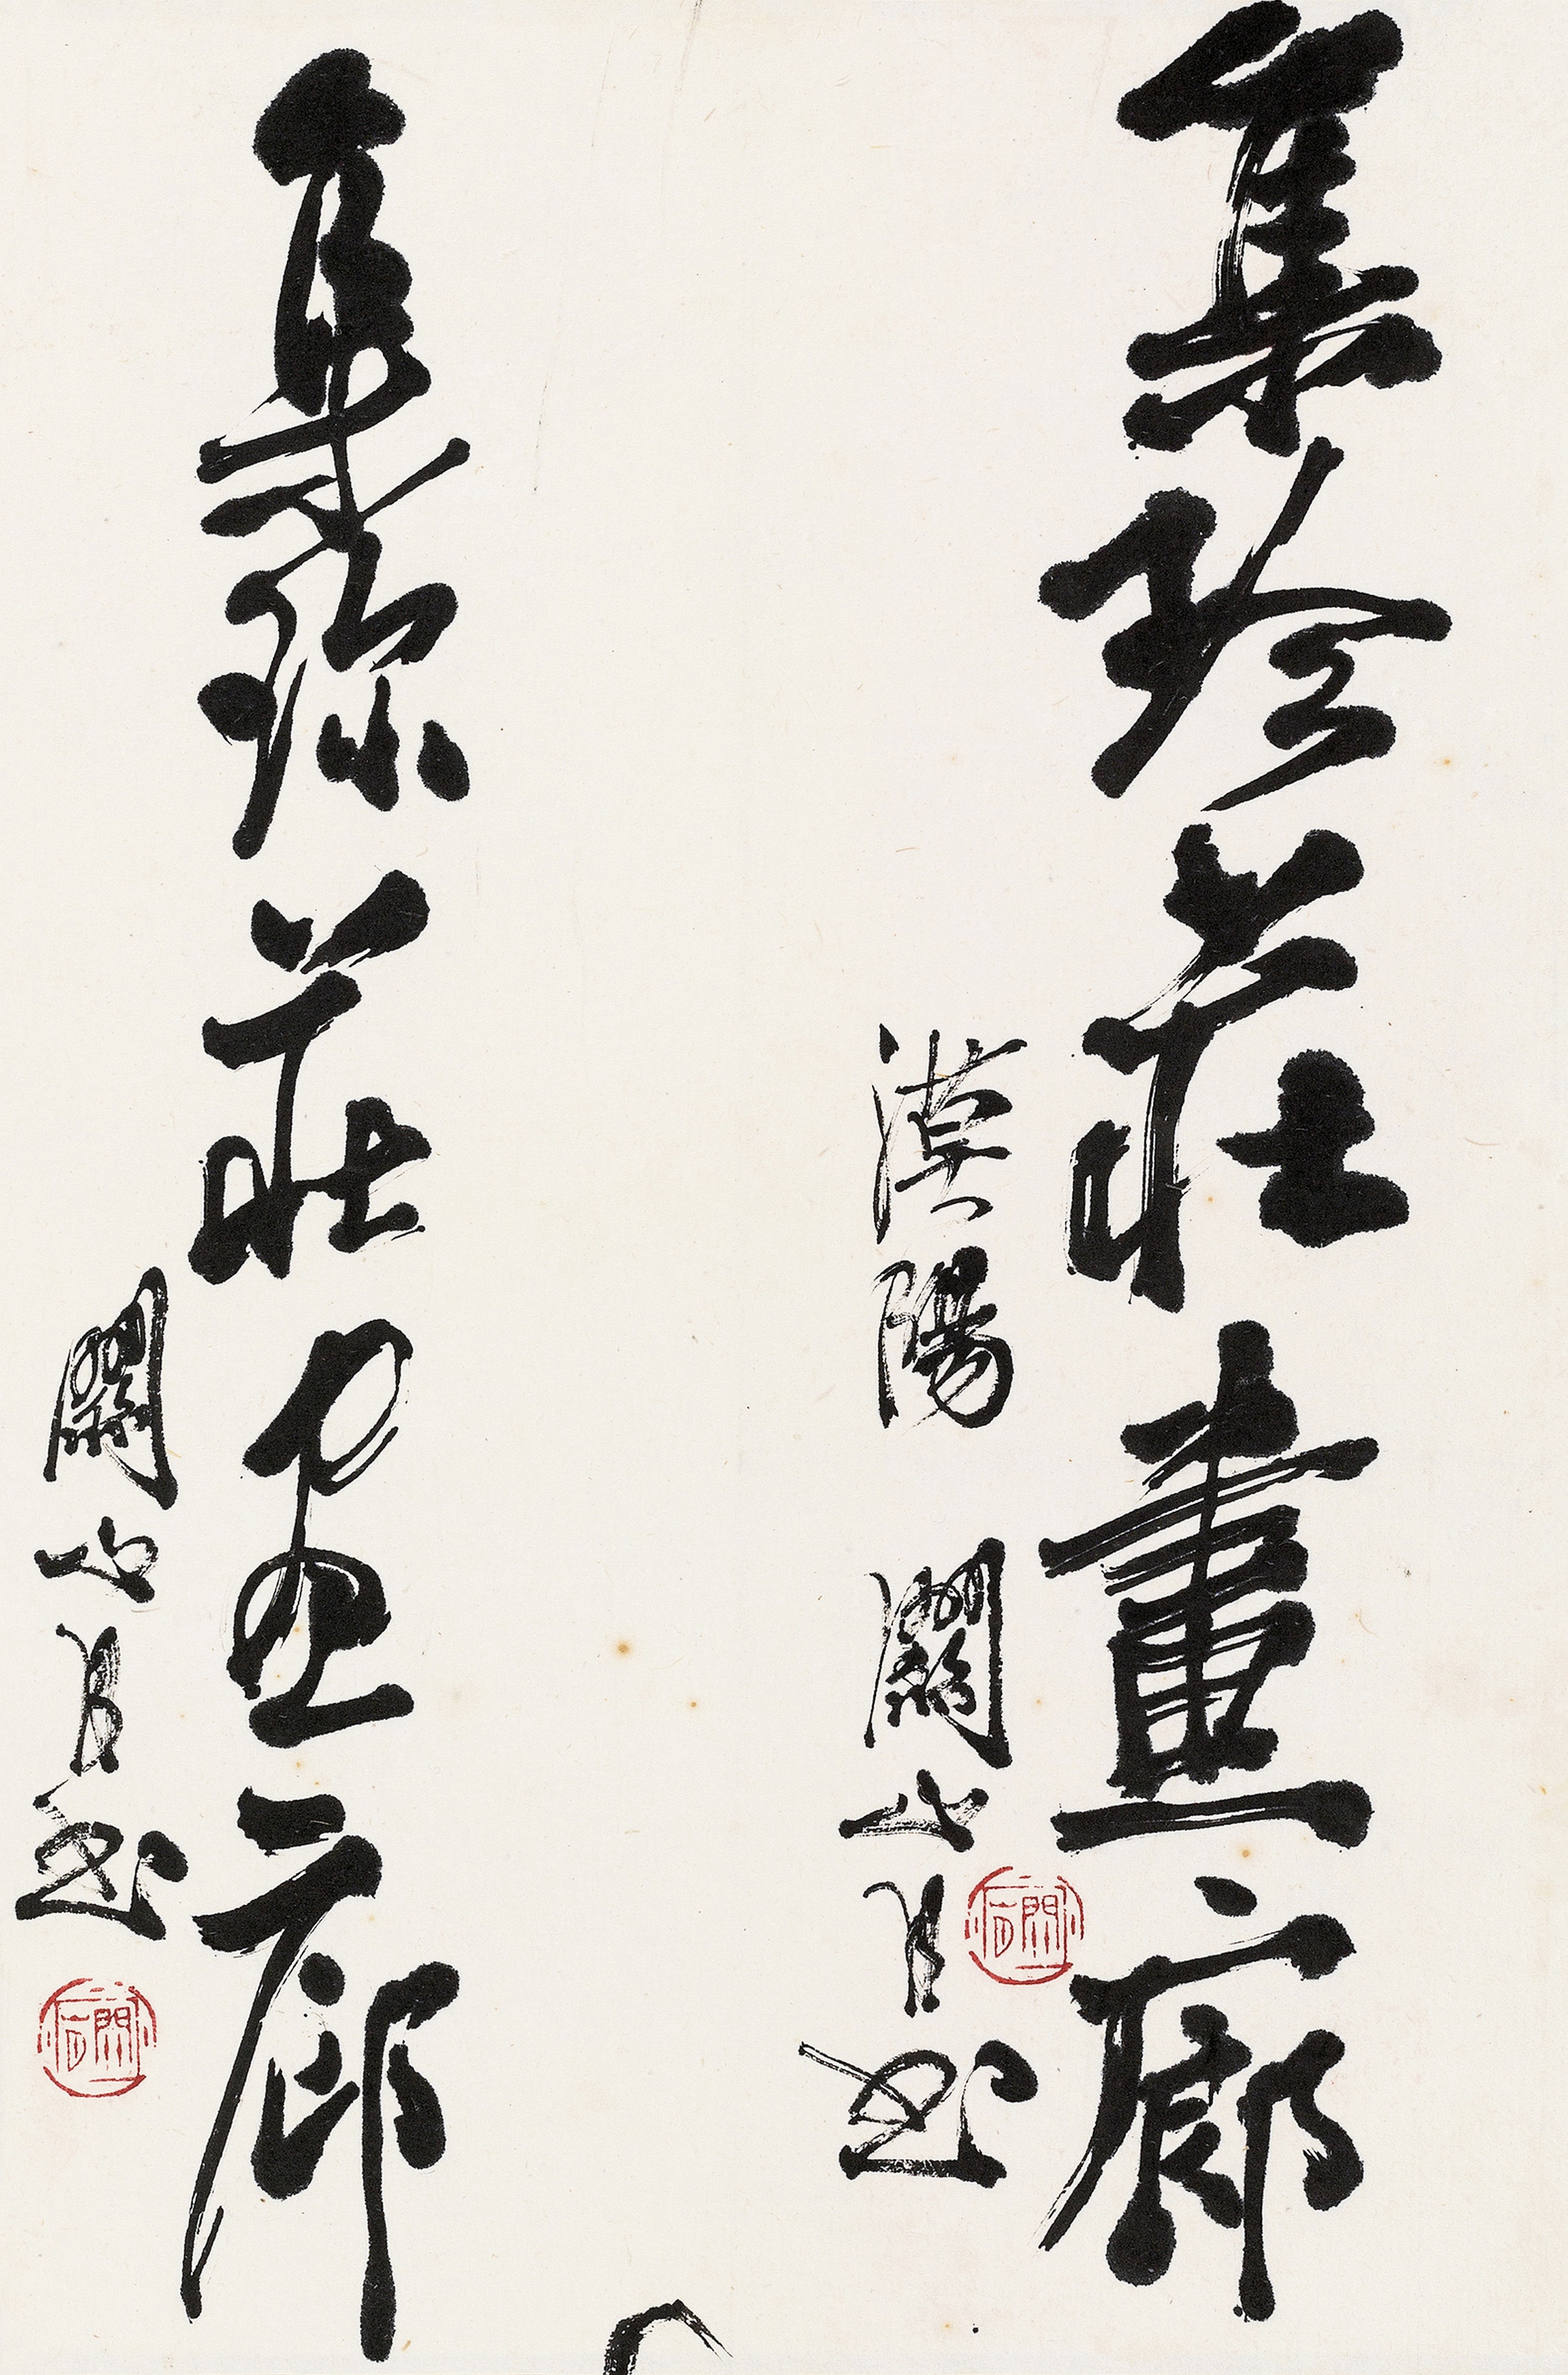 集珍莊畫廊
漠陽 關山月書
集珎莊畫廊
關山月書